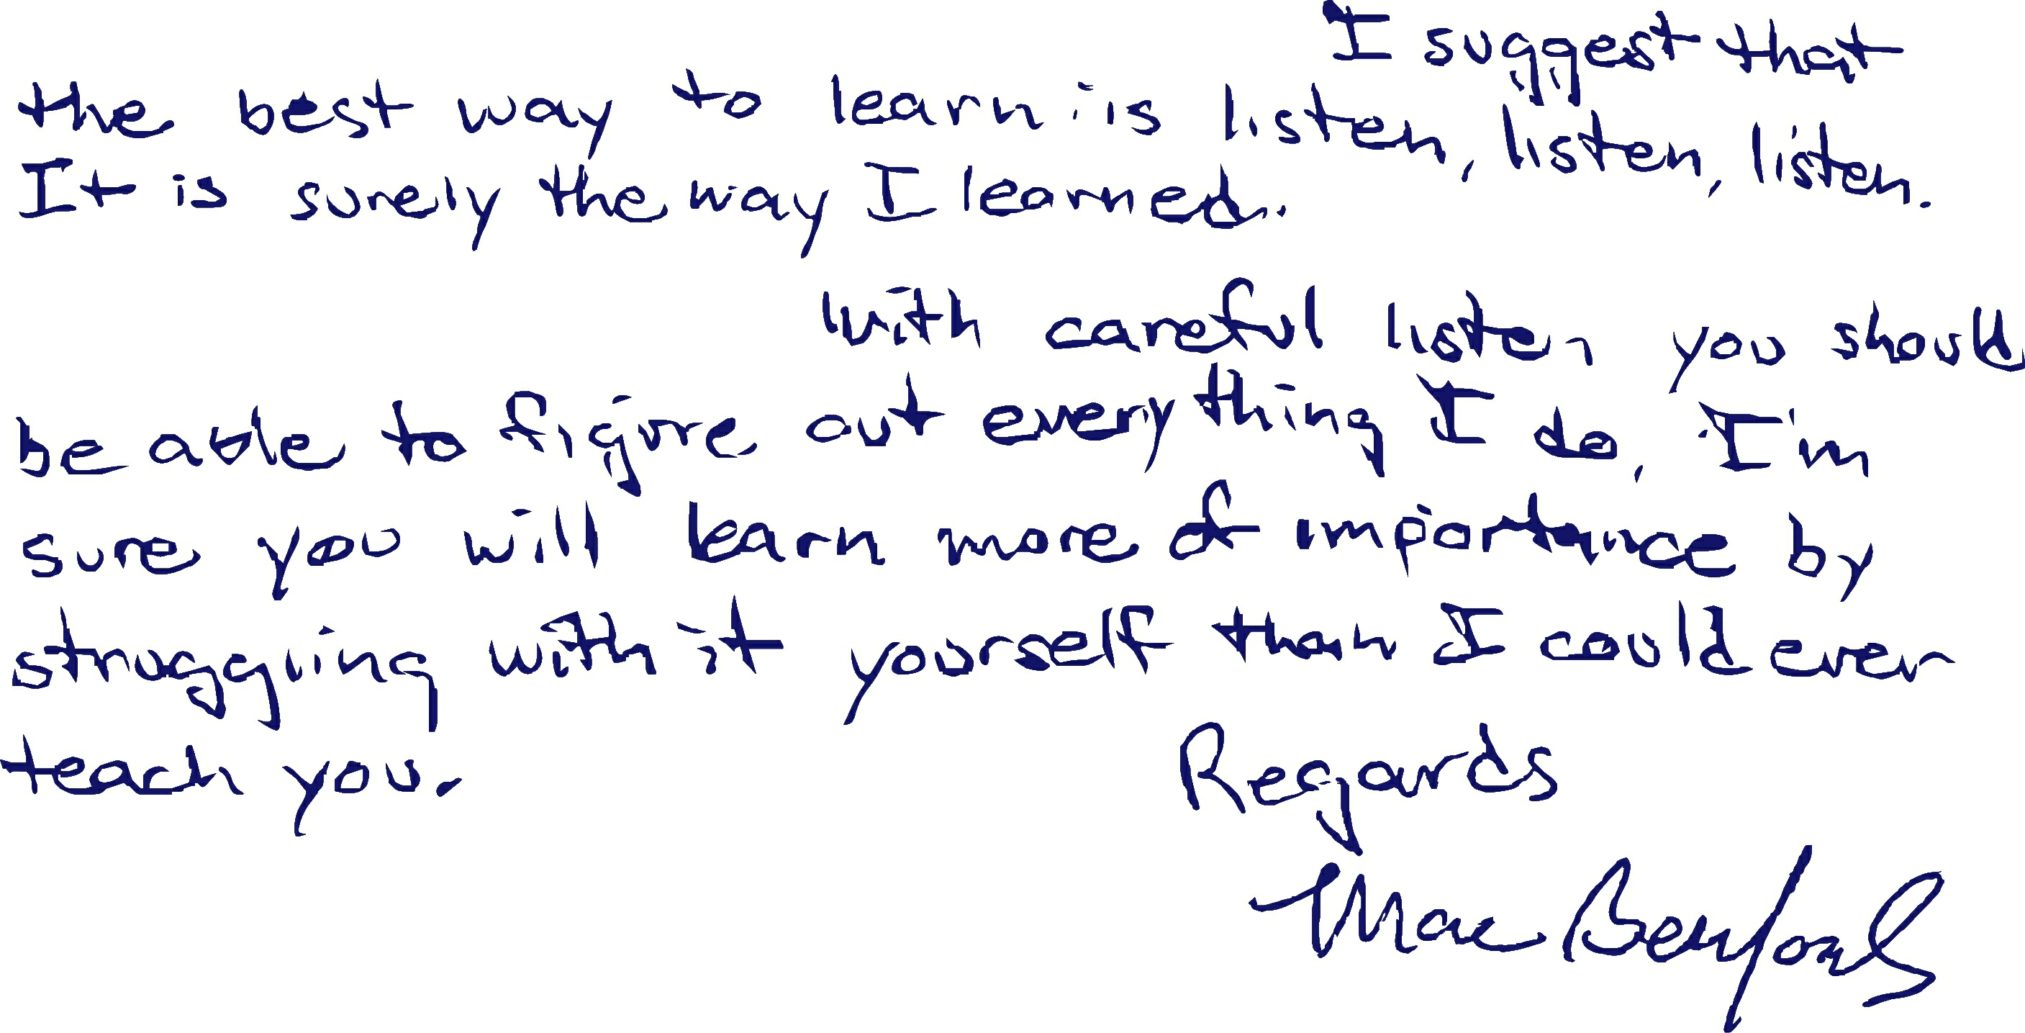 I suggest that
the best way to learn is listen, listen, listen.
It is surely the way I learned.
With careful listen you should
be able to figure out everything I do, I'm
sure you will learn more of importance by
struggling with it yourself than I could ever
teach you.
Regards
Mac Benford